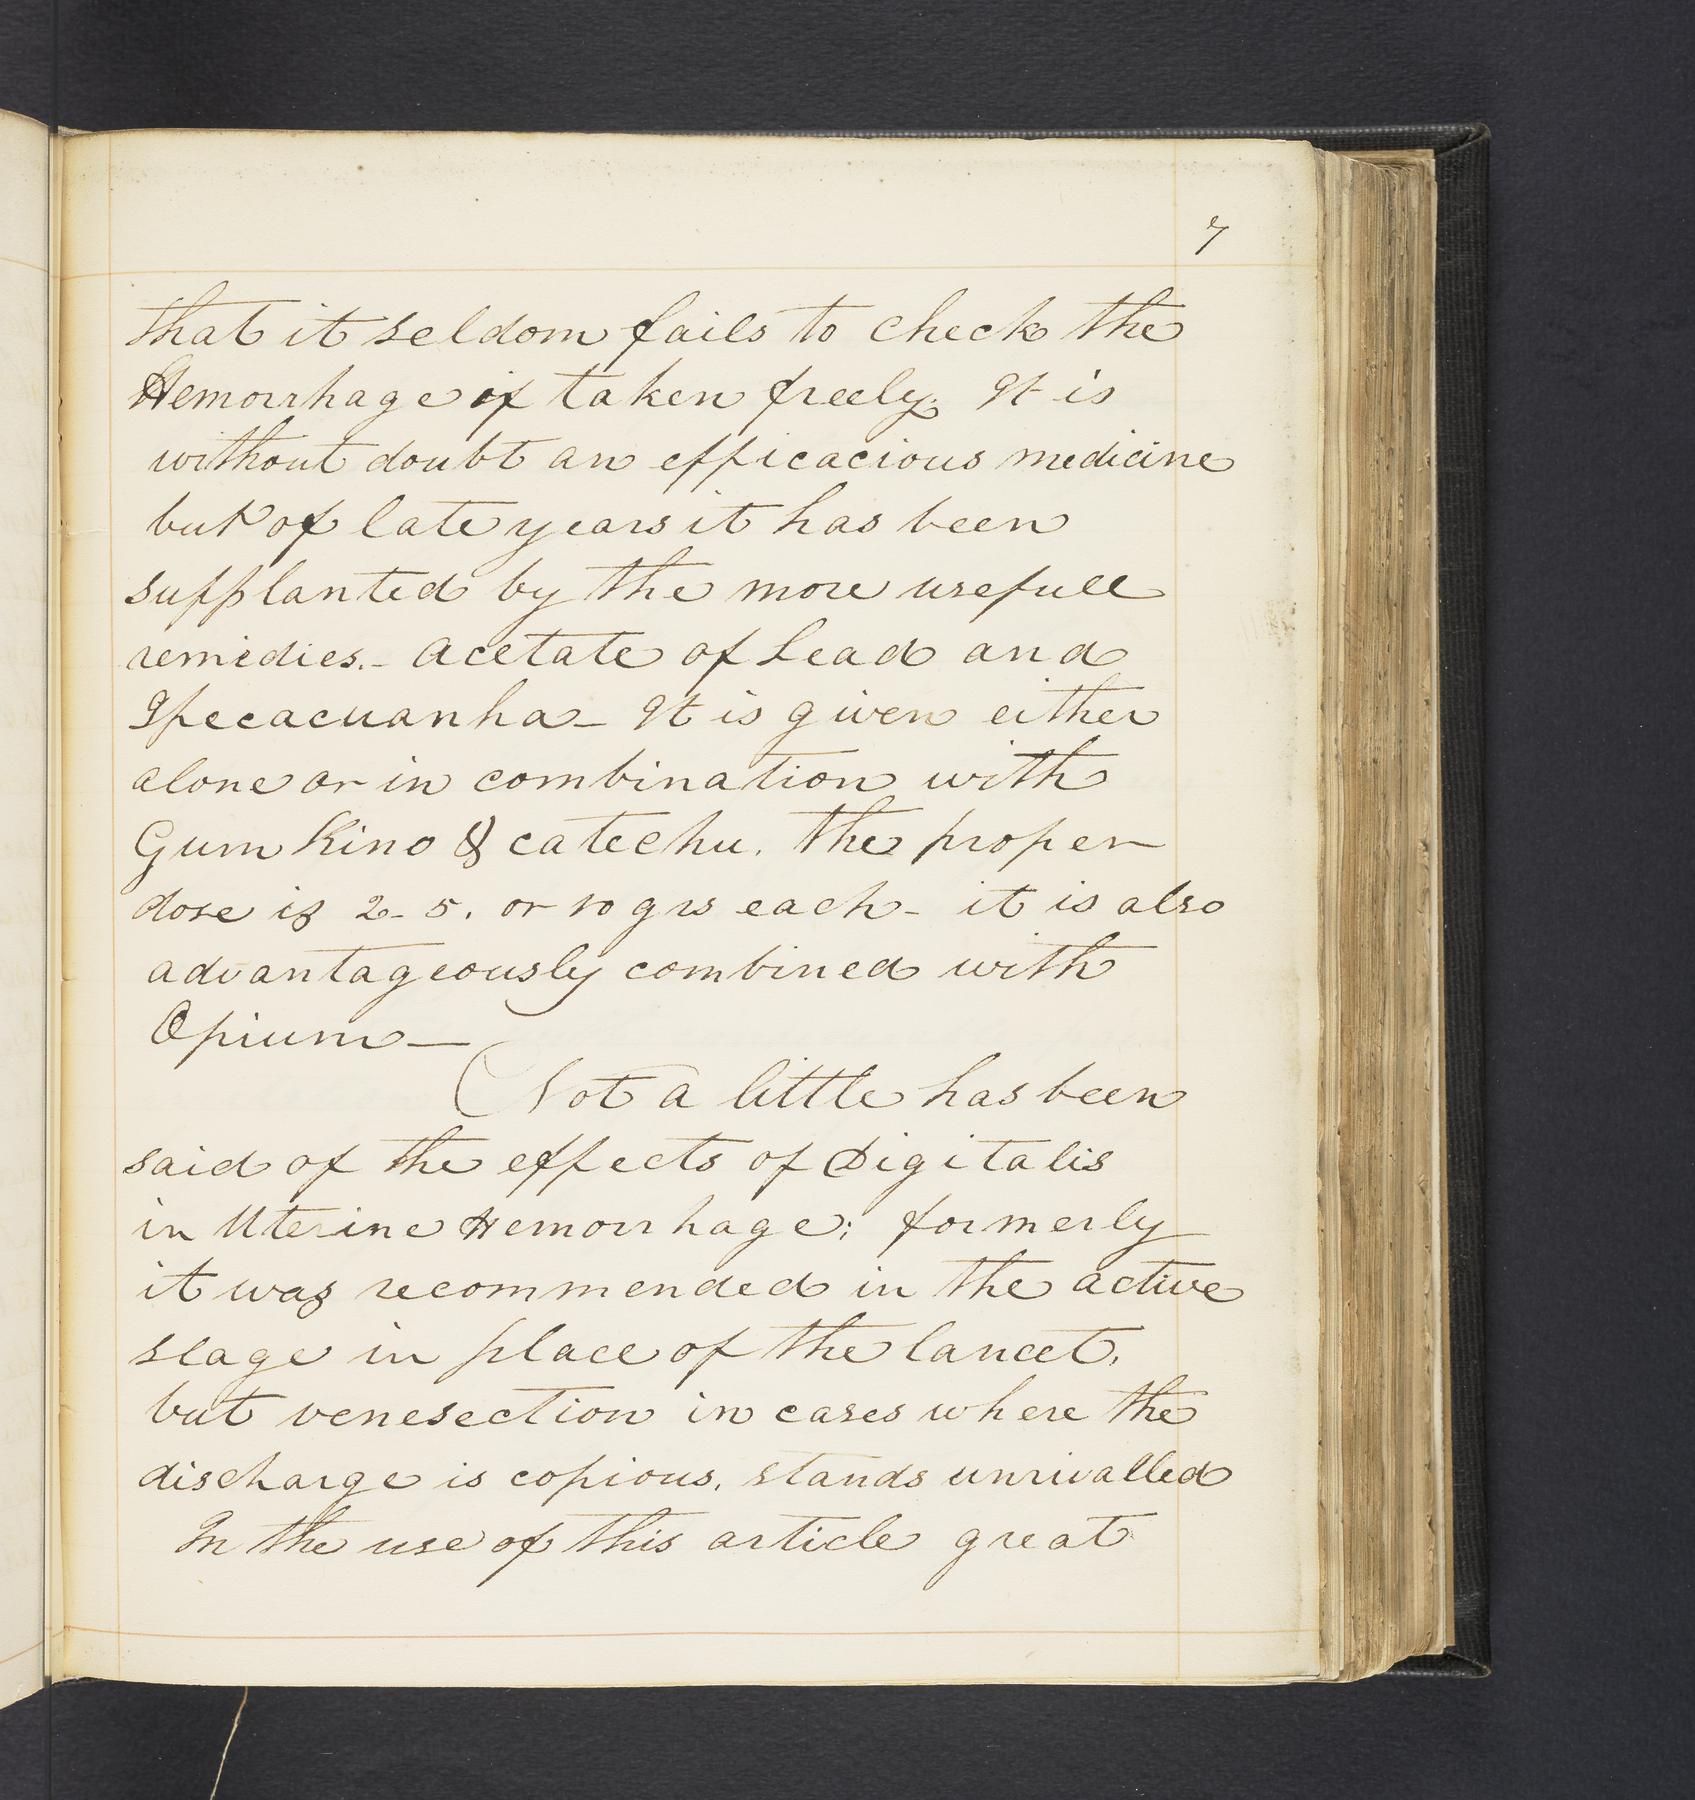 7
that it seldom fails to check the
Hemorrhage if taken freely. It is
without doubt an efficacious medicine
but of late years it has been
supplanted by the more usefull
remedies. - Acetate of Lead and
Ipecacuanha - It is given either
alone or in combination with
Gum Kino & catechu. The proper
dose is 2 - 5. or 10 grs each - it is also
advantageously combined with
Opium —
Not a little has been
said of the effects of Digitalis
in Uterine Hemorrhage; formerly
it was recommended in the active
stage in place of the lancet,
but venesection in cases where the
discharge is copious, stands unrivalled
In the use of this article great